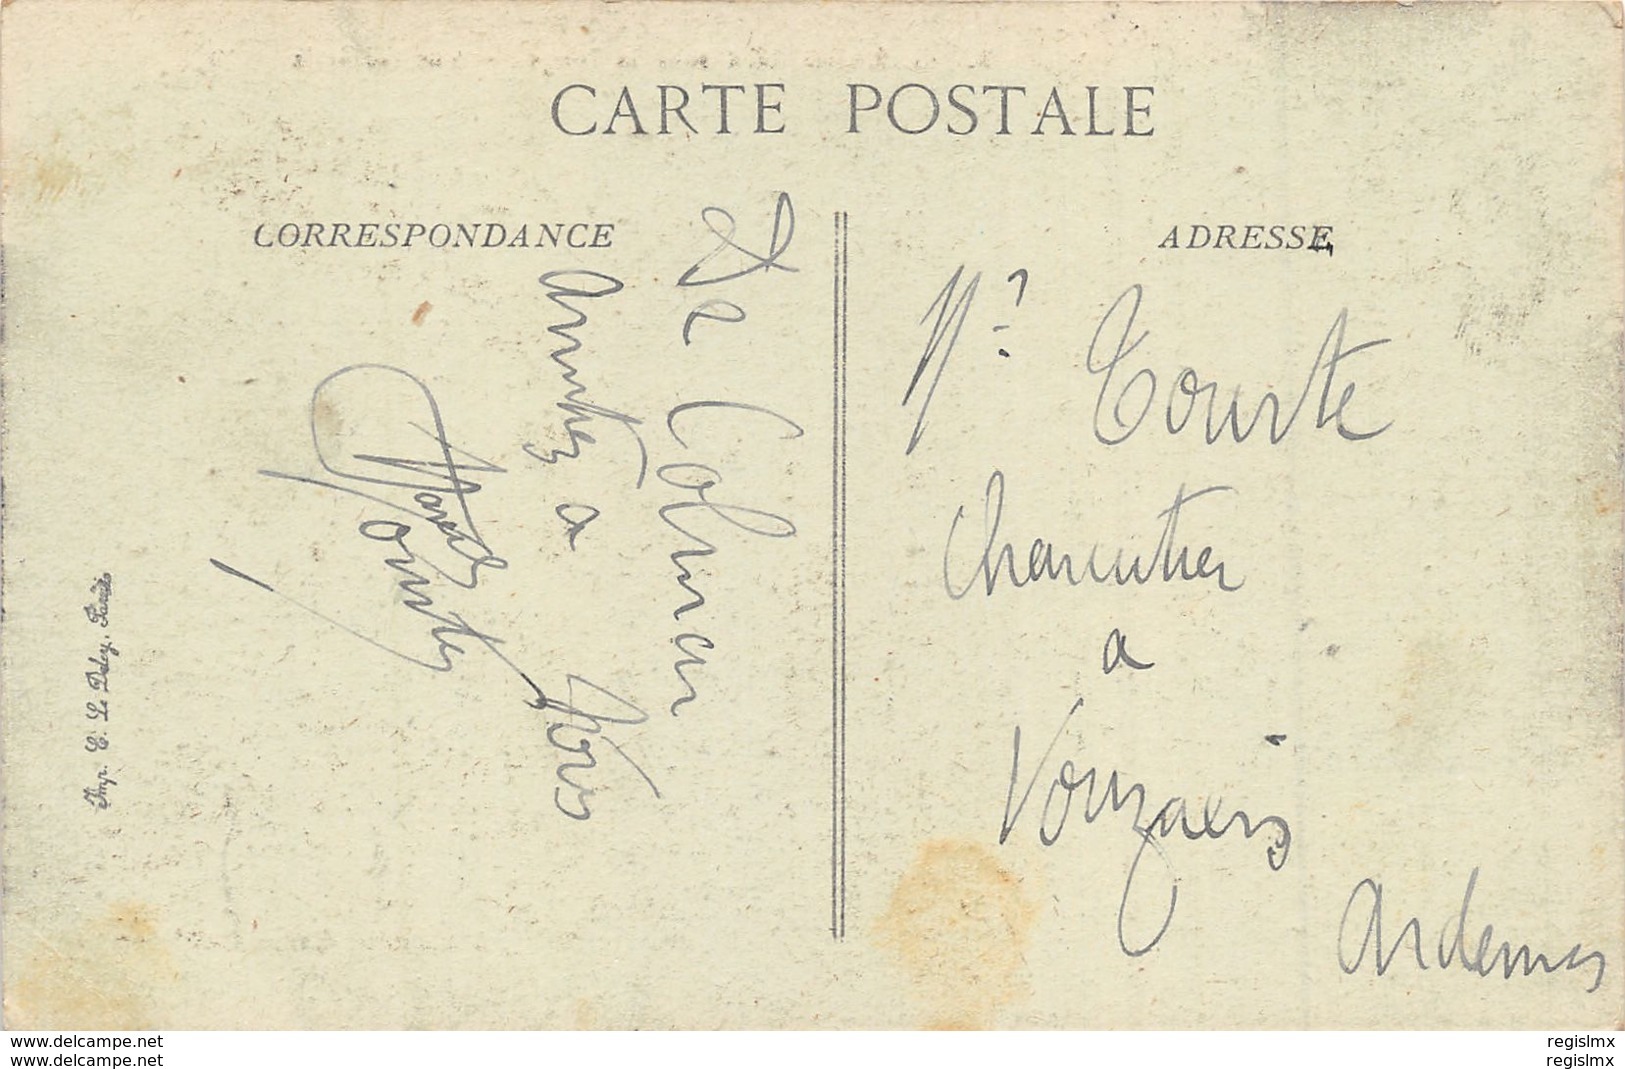 CARTE POSTALE
CORRESPONDANCE
De Colmar
amitiés à
Tourte
ADRESSE
Mr Tourte
Charcutier
a
Vouziers
Ardennes
Imp. E. Le Deley, Paris
delcampe.net
delcampe.net
regislmx
regislmx